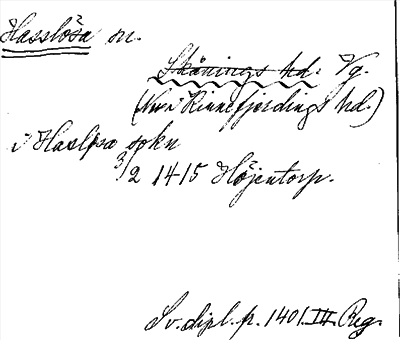 Hasslösa sn.
Skånings hd. Vg.
(Nu i Kinnefjerdings hd.)
i Haslösa sokn
3/2 1415 Höjentorp.
Sv. dipl. fr. 1401. III. Reg.